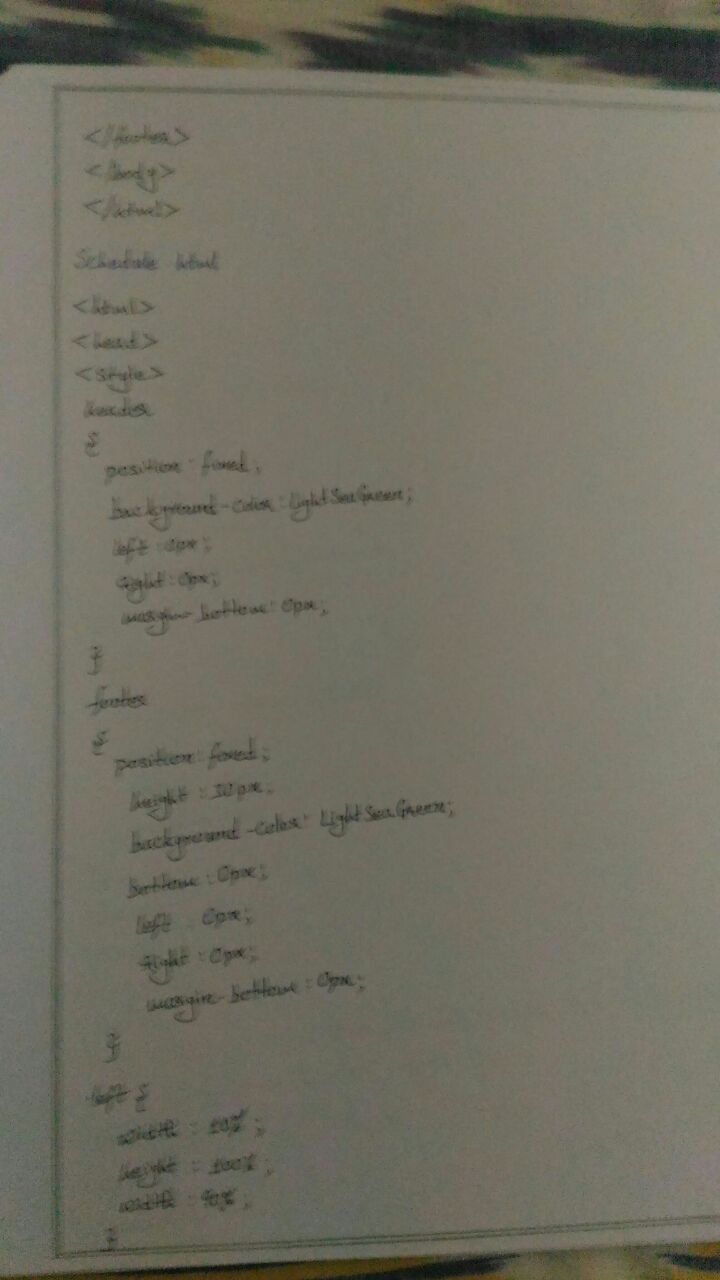 </footer>
</body>
</html>
Schedule html
<html>
<head>
<style>
header
{
position: fixed;
background-color: LightSeaGreen;
left: 0px;
right: 0px;
margin-bottom: 0px;
}
footer
{
position: fixed;
height: px;
background-color: LightSeaGreen;
bottom: 0px;
left 0px;
right: 0px;
margin-bottom: 0px;
}
left {
width: 10%;
height: 100%;
width: 90%;
}